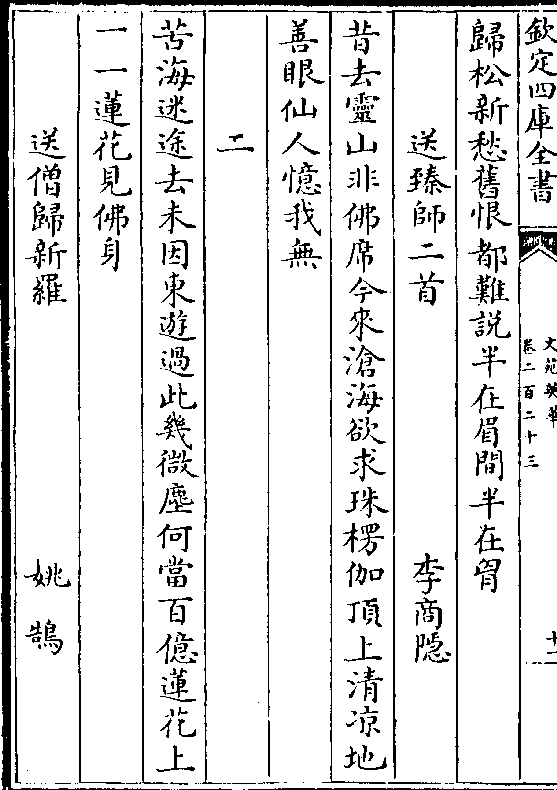 欽定四庫全書
文苑英華
卷二百二十三
十二
歸松新愁舊恨都難説半在眉間半在胷
送臻師二首 李商隱
昔去靈山非佛席今來滄海欲求珠楞伽頂上清涼地
善眼仙人憶我無
二
苦海迷途去未因東遊過此幾微塵何當百億蓮花上
一一蓮花見佛身
送僧歸新羅 姚鵠